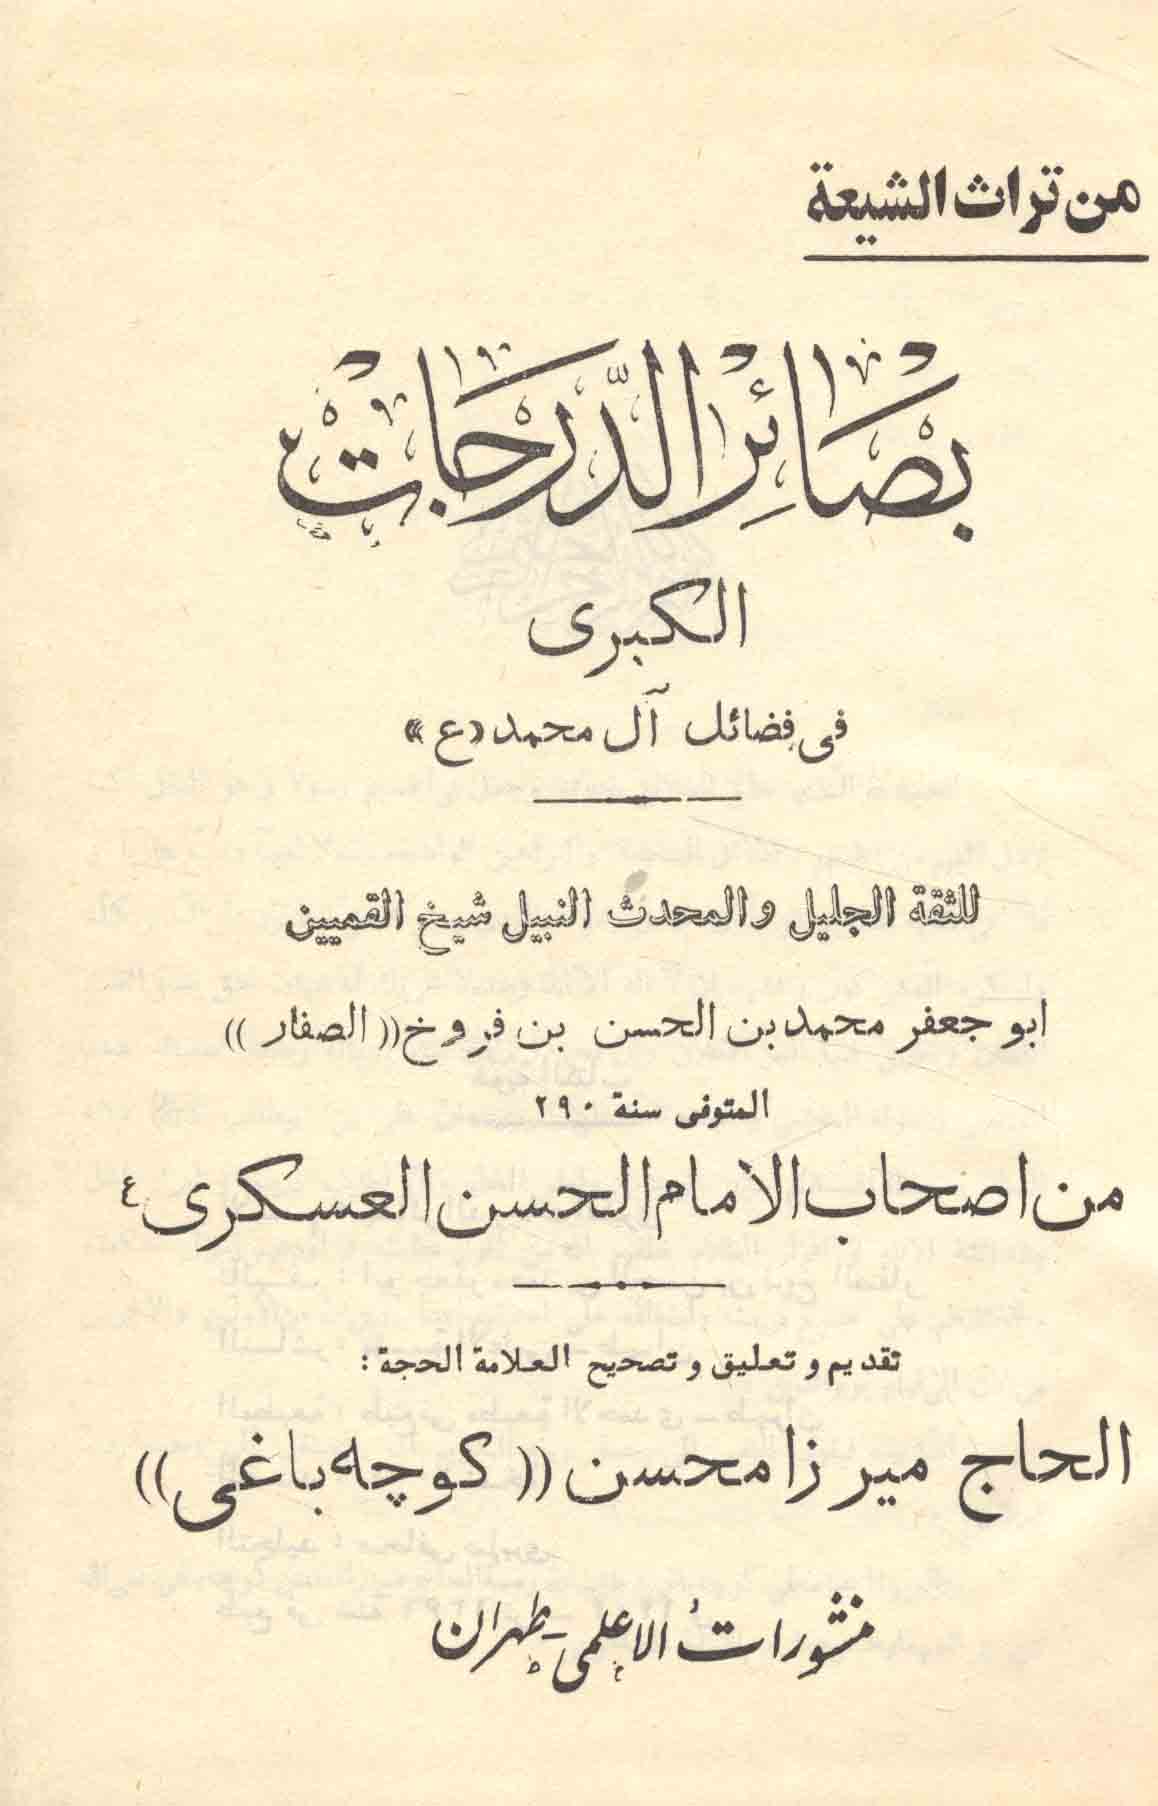 من تراث الشيعة
بَصَائِرُ الدَّرَجَات
الكبرى
في فضائل آل محمد «ع»
للثقة الجليل والمحدث النبيل شيخ القميين
ابو جعفر محمد بن الحسن بن فروخ (( الصفار ))
المتوفى سنة ٢٩٠
من اصحاب الامام الحسن العسكرى ع
تقديم و تعليق و تصحيح العلامة الحجة :
الحاج ميرزا محسن (( كوچه باغى ))
منشورات الاعلمى - طهران